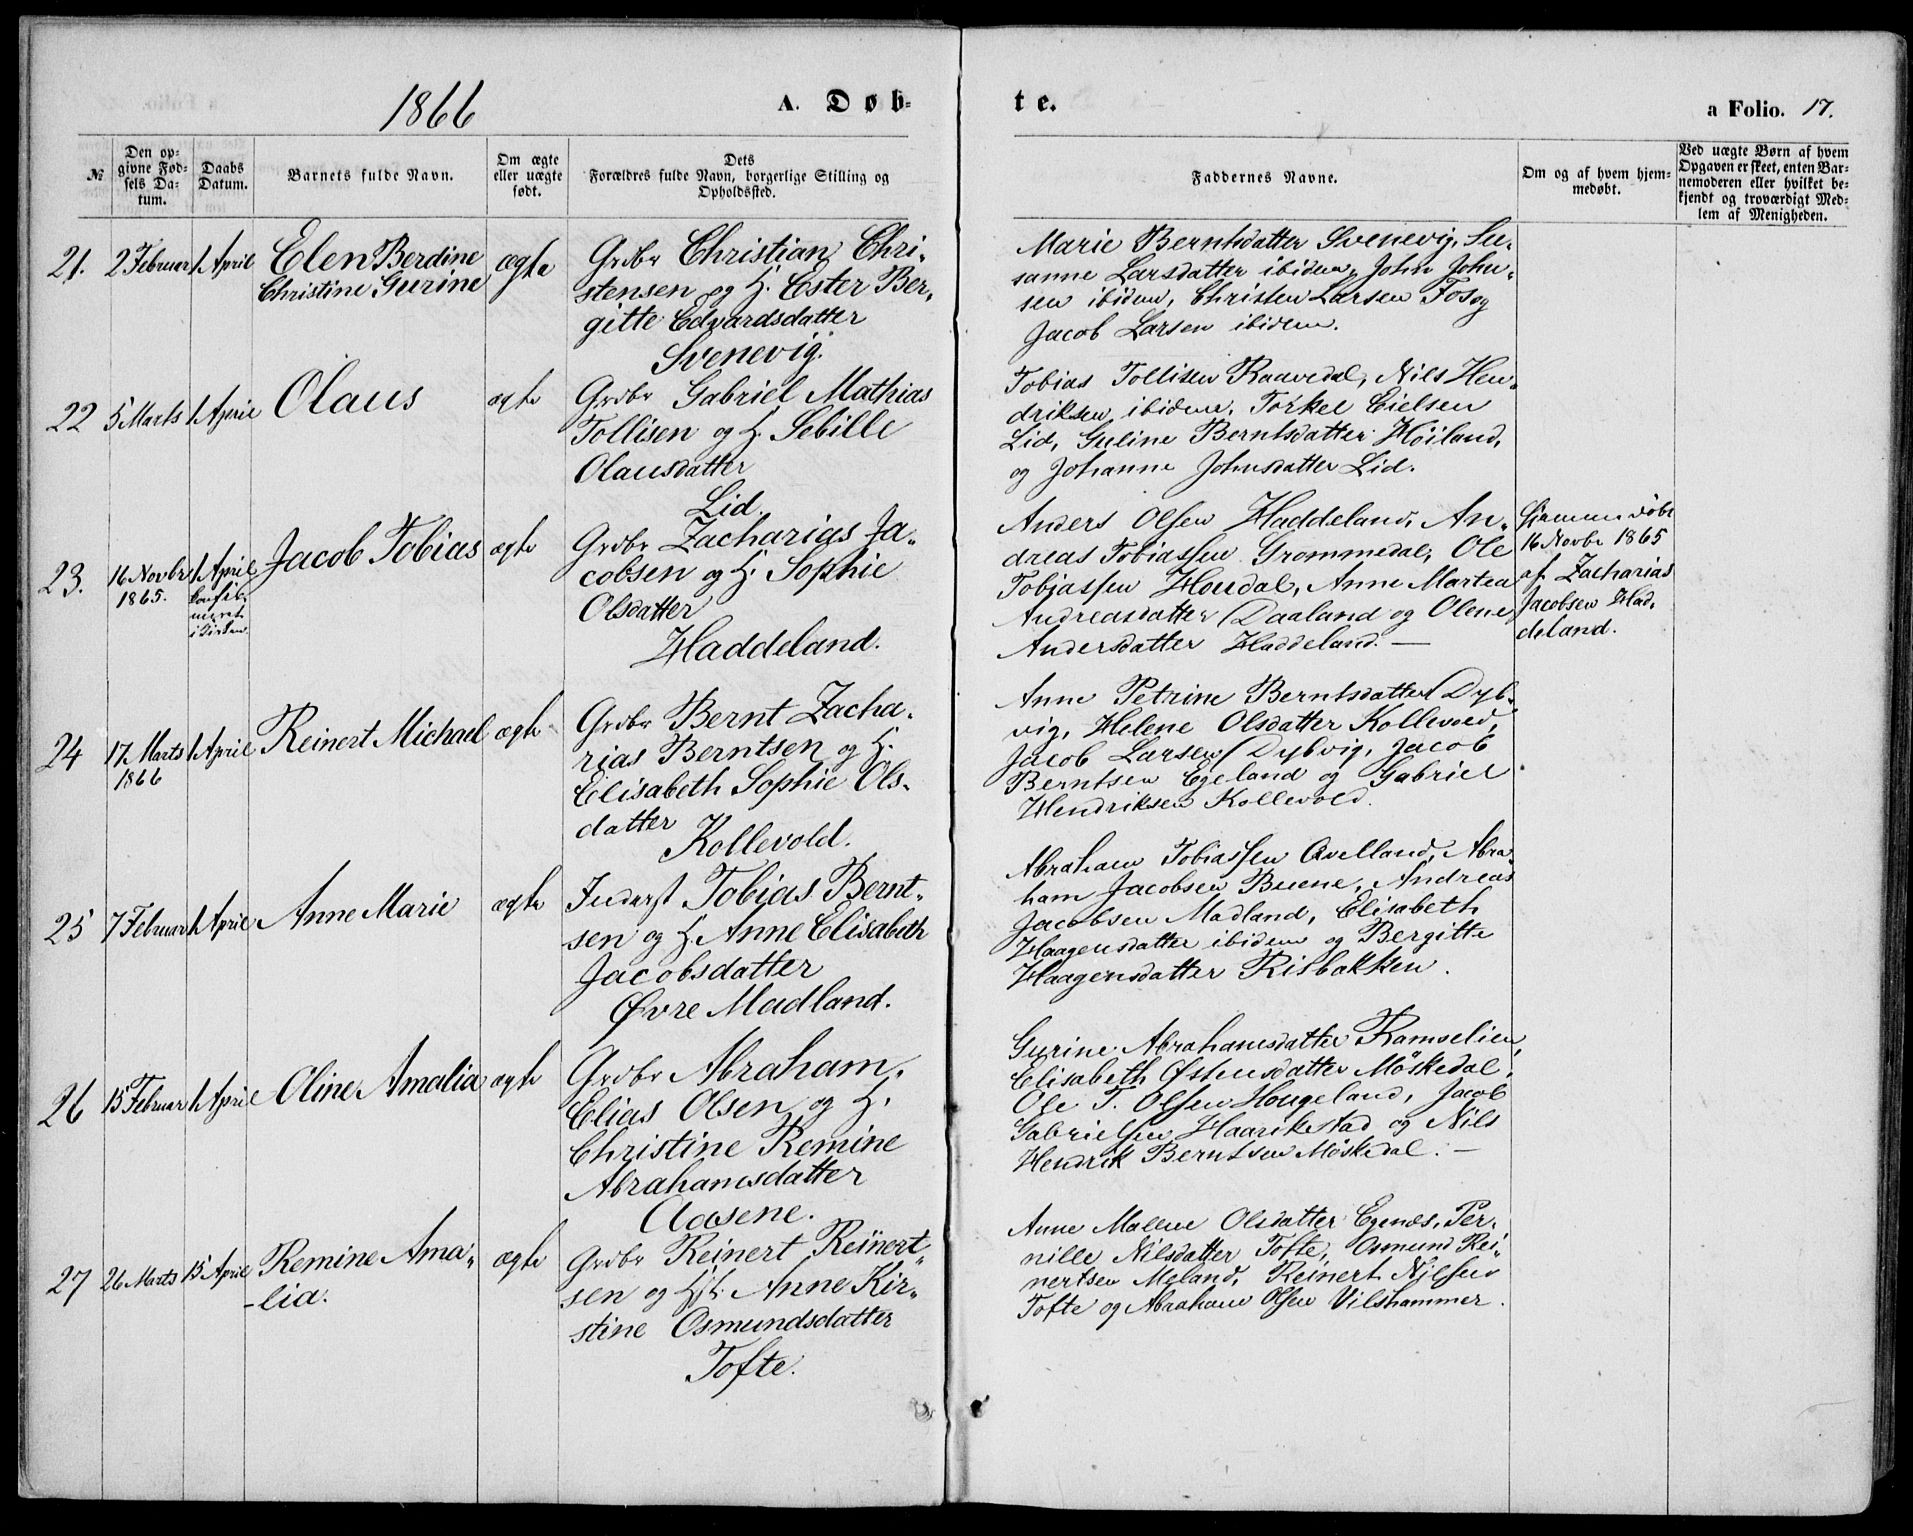 1866
A. Døb-
te.
a Folio. 17.
№
Den op-
givne Fød-
sels Da-
tum.
Daabs
Datum.
Barnets fulde Navn.
Om ægte
eller uægte
født.
Dets
Forældres fulde Navn, borgerlige Stilling og
Opholdssted.
Faddernes Navne.
Om og af hvem hjem-
medøbt.
Ved uægte Børn af hvem
Opgaven er skeet, enten Bar-
nemoderen eller hvilket be-
kjendt og troværdigt Med-
lem af Menigheden.
21.
2 Februar
1 April
Elen Berdine
Christine Gurine
ægte
Grdbr Christian Chri-
stensen og H. Ester Ber-
gitte Edvardsdatter
Svenevig.
Marie Berntsdatter Svenevig, Su-
sanne Larsdatter ibidem, John John-
sen ibidem, Christen Larsen Fos og
Jacob Larsen ibidem.
22
5 Marts
1 April
Olaus
ægte
Grdbr Gabriel Mathias
Tollisen og H. Sebille
Olausdatter
Lid.
Tobias Tollisen Raavedal, Nils Hen-
driksen ibidem, Torkel Eielsen
Lid, Guline Berntsdatter Høiland,
og Johanne Johnsdatter Lid.
23.
16 Novbr
1865.
1 April
i Kirken
Jacob Tobias
ægte
Grdbr Zacharias Ja-
cobsen og H. Sophie
Olsdatter
Haddeland.
Anders Olsen Haddeland, An-
dreas Tobiassen Grommedal, Ole
Tobiassen Houdal, Anne Martea
Andreasdatter Daaland og Olene
Andersdatter Haddeland. —
Hjemmedøbt
16 Novbr 1865
af Zacharias
Jacobsen Had-
deland.
24
17 Marts
1866
1 April
Reinert Michael
ægte
Grdbr Bernt Zacha-
rias Berntsen og H.
Elisabeth Sophie Ols-
datter
Kollevold.
Anne Petrine Berntsdatter Dyb-
vig, Helene Olsdatter Kollevold,
Jacob Larsen Dybvig, Jacob
Berntsen Egeland og Gabriel
Hendriksen Kollevold.
25
7 Februar
1 April
Anne Marie
ægte
Inderst Tobias Bernt-
sen og H. Anne Elisabeth
Jacobsdatter
Øvre Madland.
Abraham Tobiassen Qvelland, Abra-
ham Jacobsen Buene, Andreas
Jacobsen Madland, Elisabeth
Haagensdatter ibidem og Bergitte
Haagensdatter Risbakken.
26
15 Februar
1 April
Oline Amalia
ægte
Grdbr Abraham
Elias Olsen og H.
Christine Remine
Abrahamsdatter
Aasene.
Gurine Abrahamsdatter Ramselien,
Elisabeth Østensdatter Möskedal,
Ole T. Olsen Hougeland, Jacob
Gabrielsen Haarikstad og Nils
Hendrik Berntsen Möskedal. —
27
26 Marts
15 April
Remine Ama-
-lia.
ægte
Grdbr Reinert Reinert-
sen og Hst. Anne Kir-
stine Osmundsdatter
Tofte.
Anne Malene Olsdatter Egenæs, Per-
nille Nilsdatter Tofte, Osmund Rei-
nertsen Meland, Reinert Nielsen
Tofte og Abraham Olsen Vilshammer.